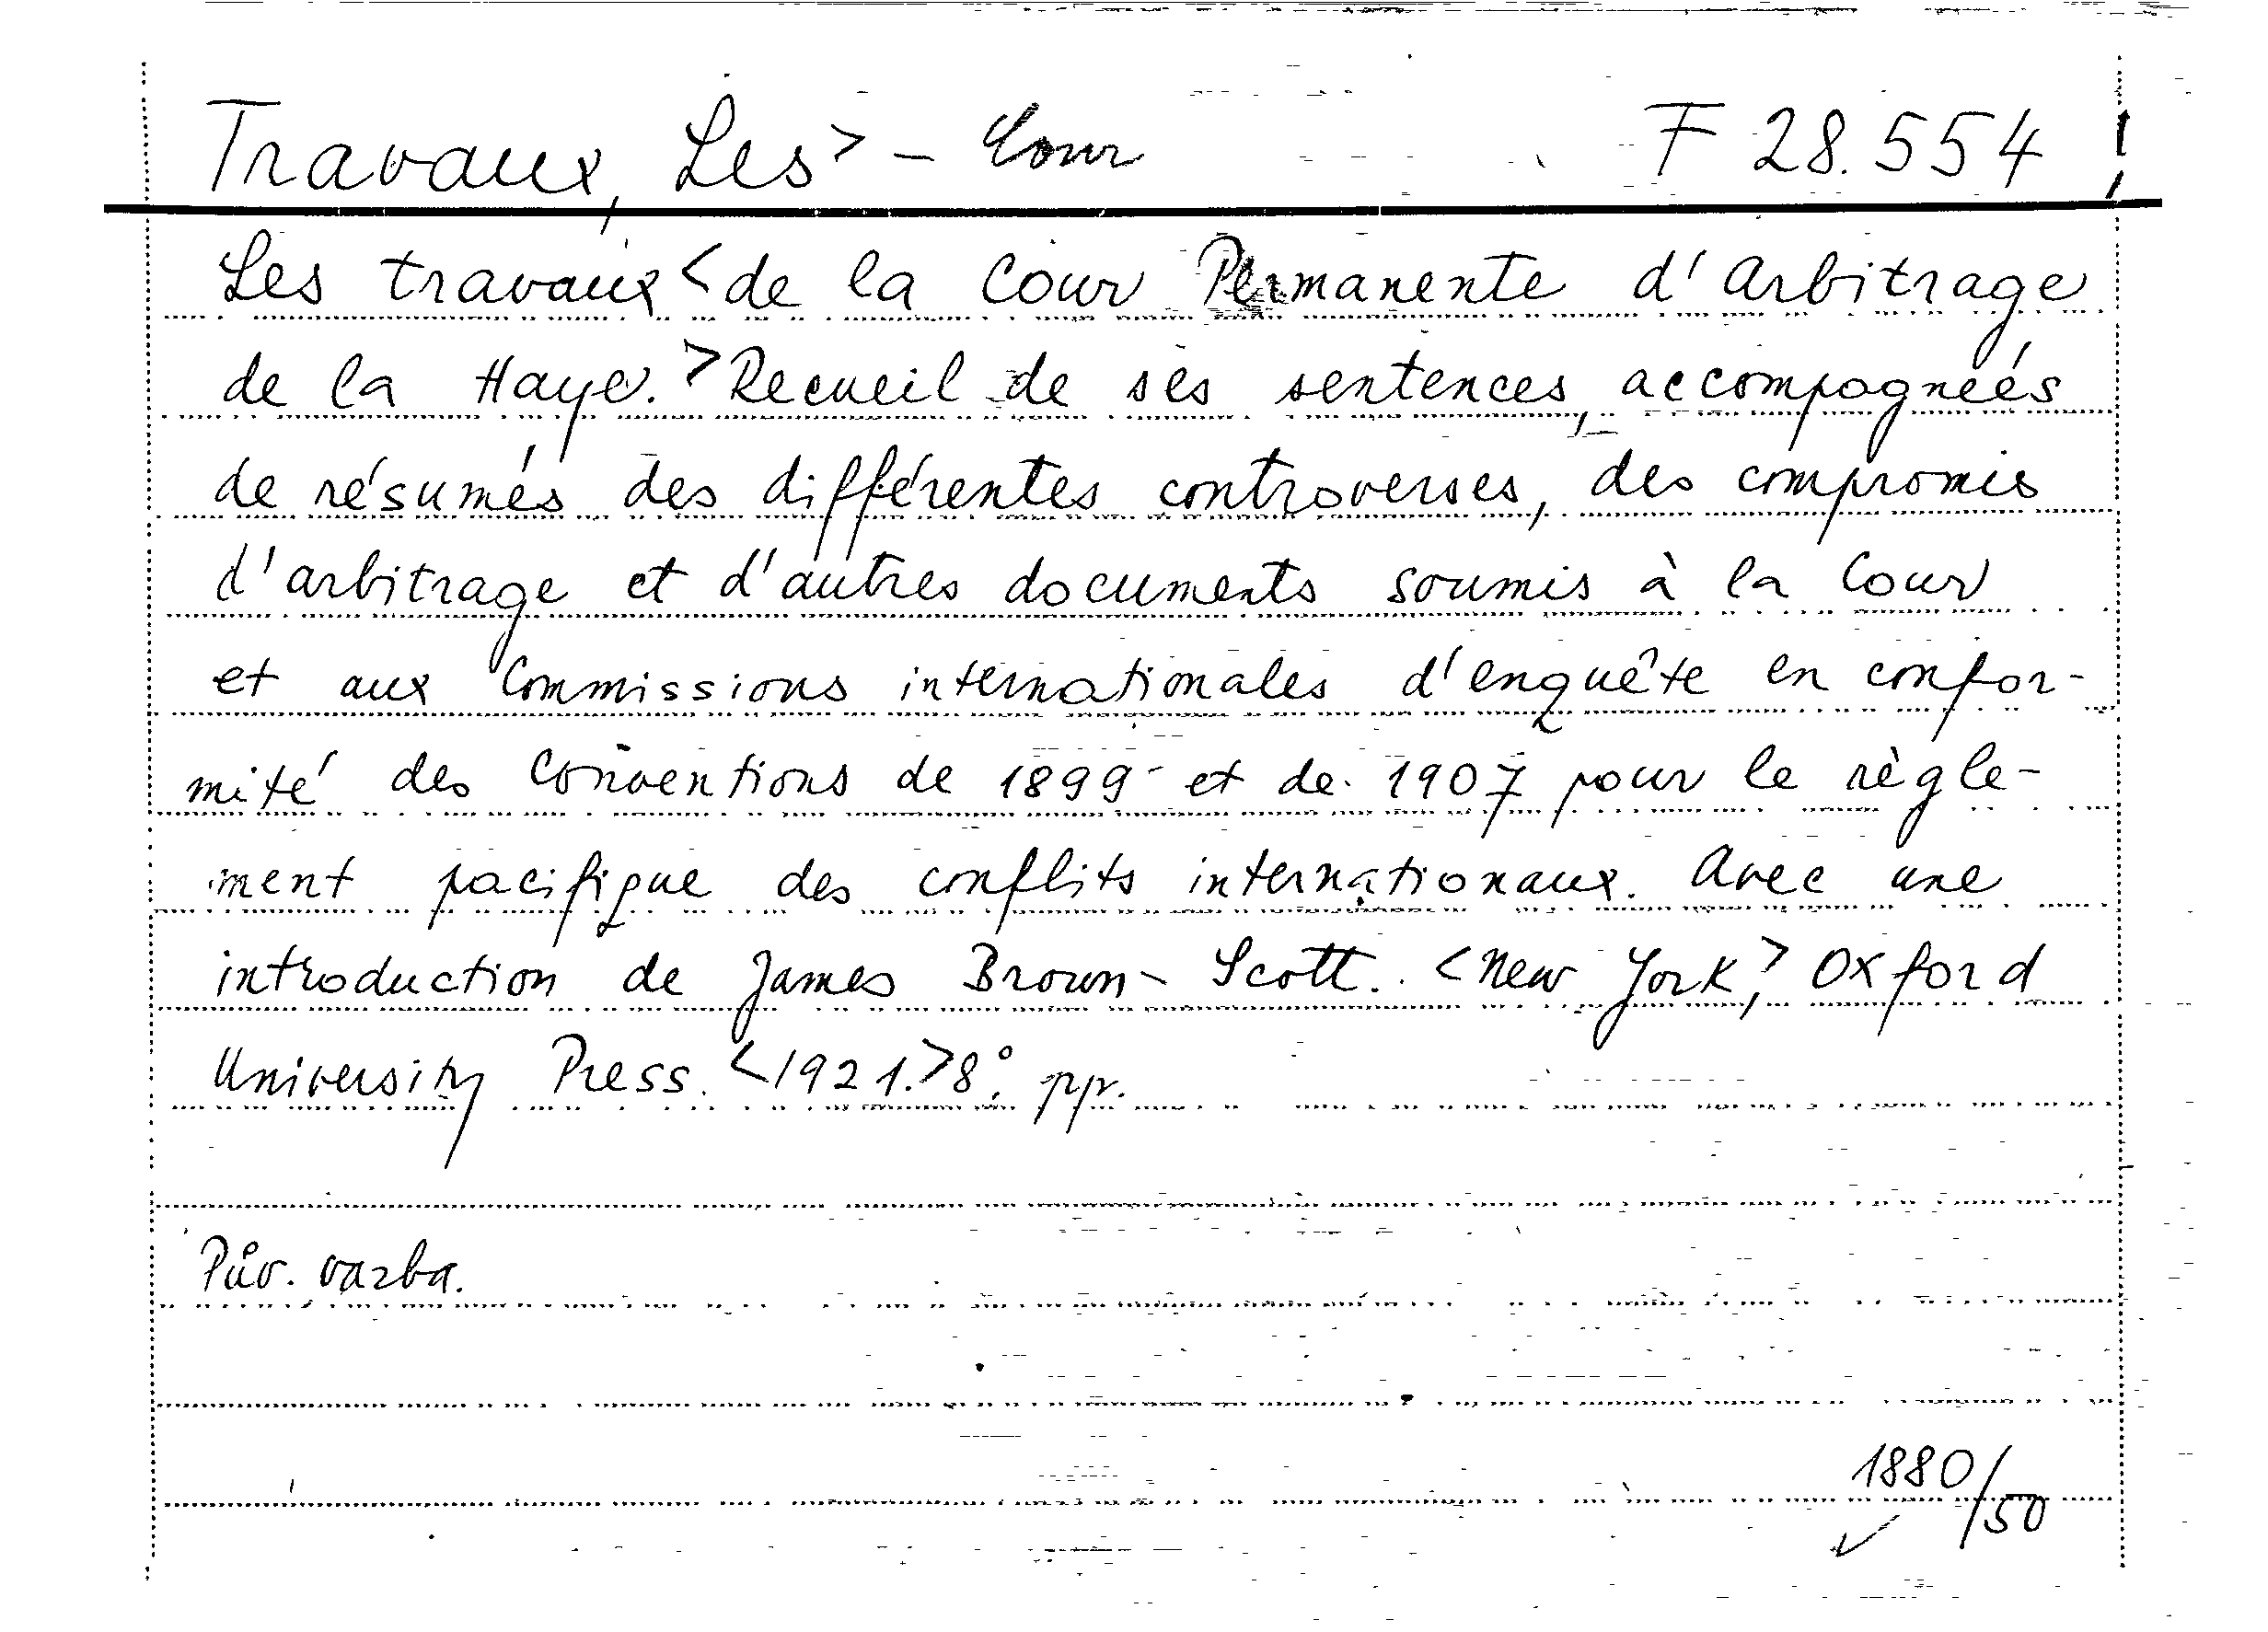 Travaux, Les> - Cour F 28.554 !
Les travaux <de la Cour Permanente d'Arbitrage
de la Haye.> Recueil de ses sentences, accompagnées
de résumés des différentes controverses, des compromis
d'arbitrage et d'autres documents soumis à la Cour
et aux Commissions internationales d'enquête en confor-
mité des Conventions de 1899 et de 1907 pour le règle-
ment pacifique des conflits internationaux. Avec une
introduction de James Brown-Scott. <New York,> Oxford
University Press. <1921.> 8°. pp.
Pův. vazba.
1880/50